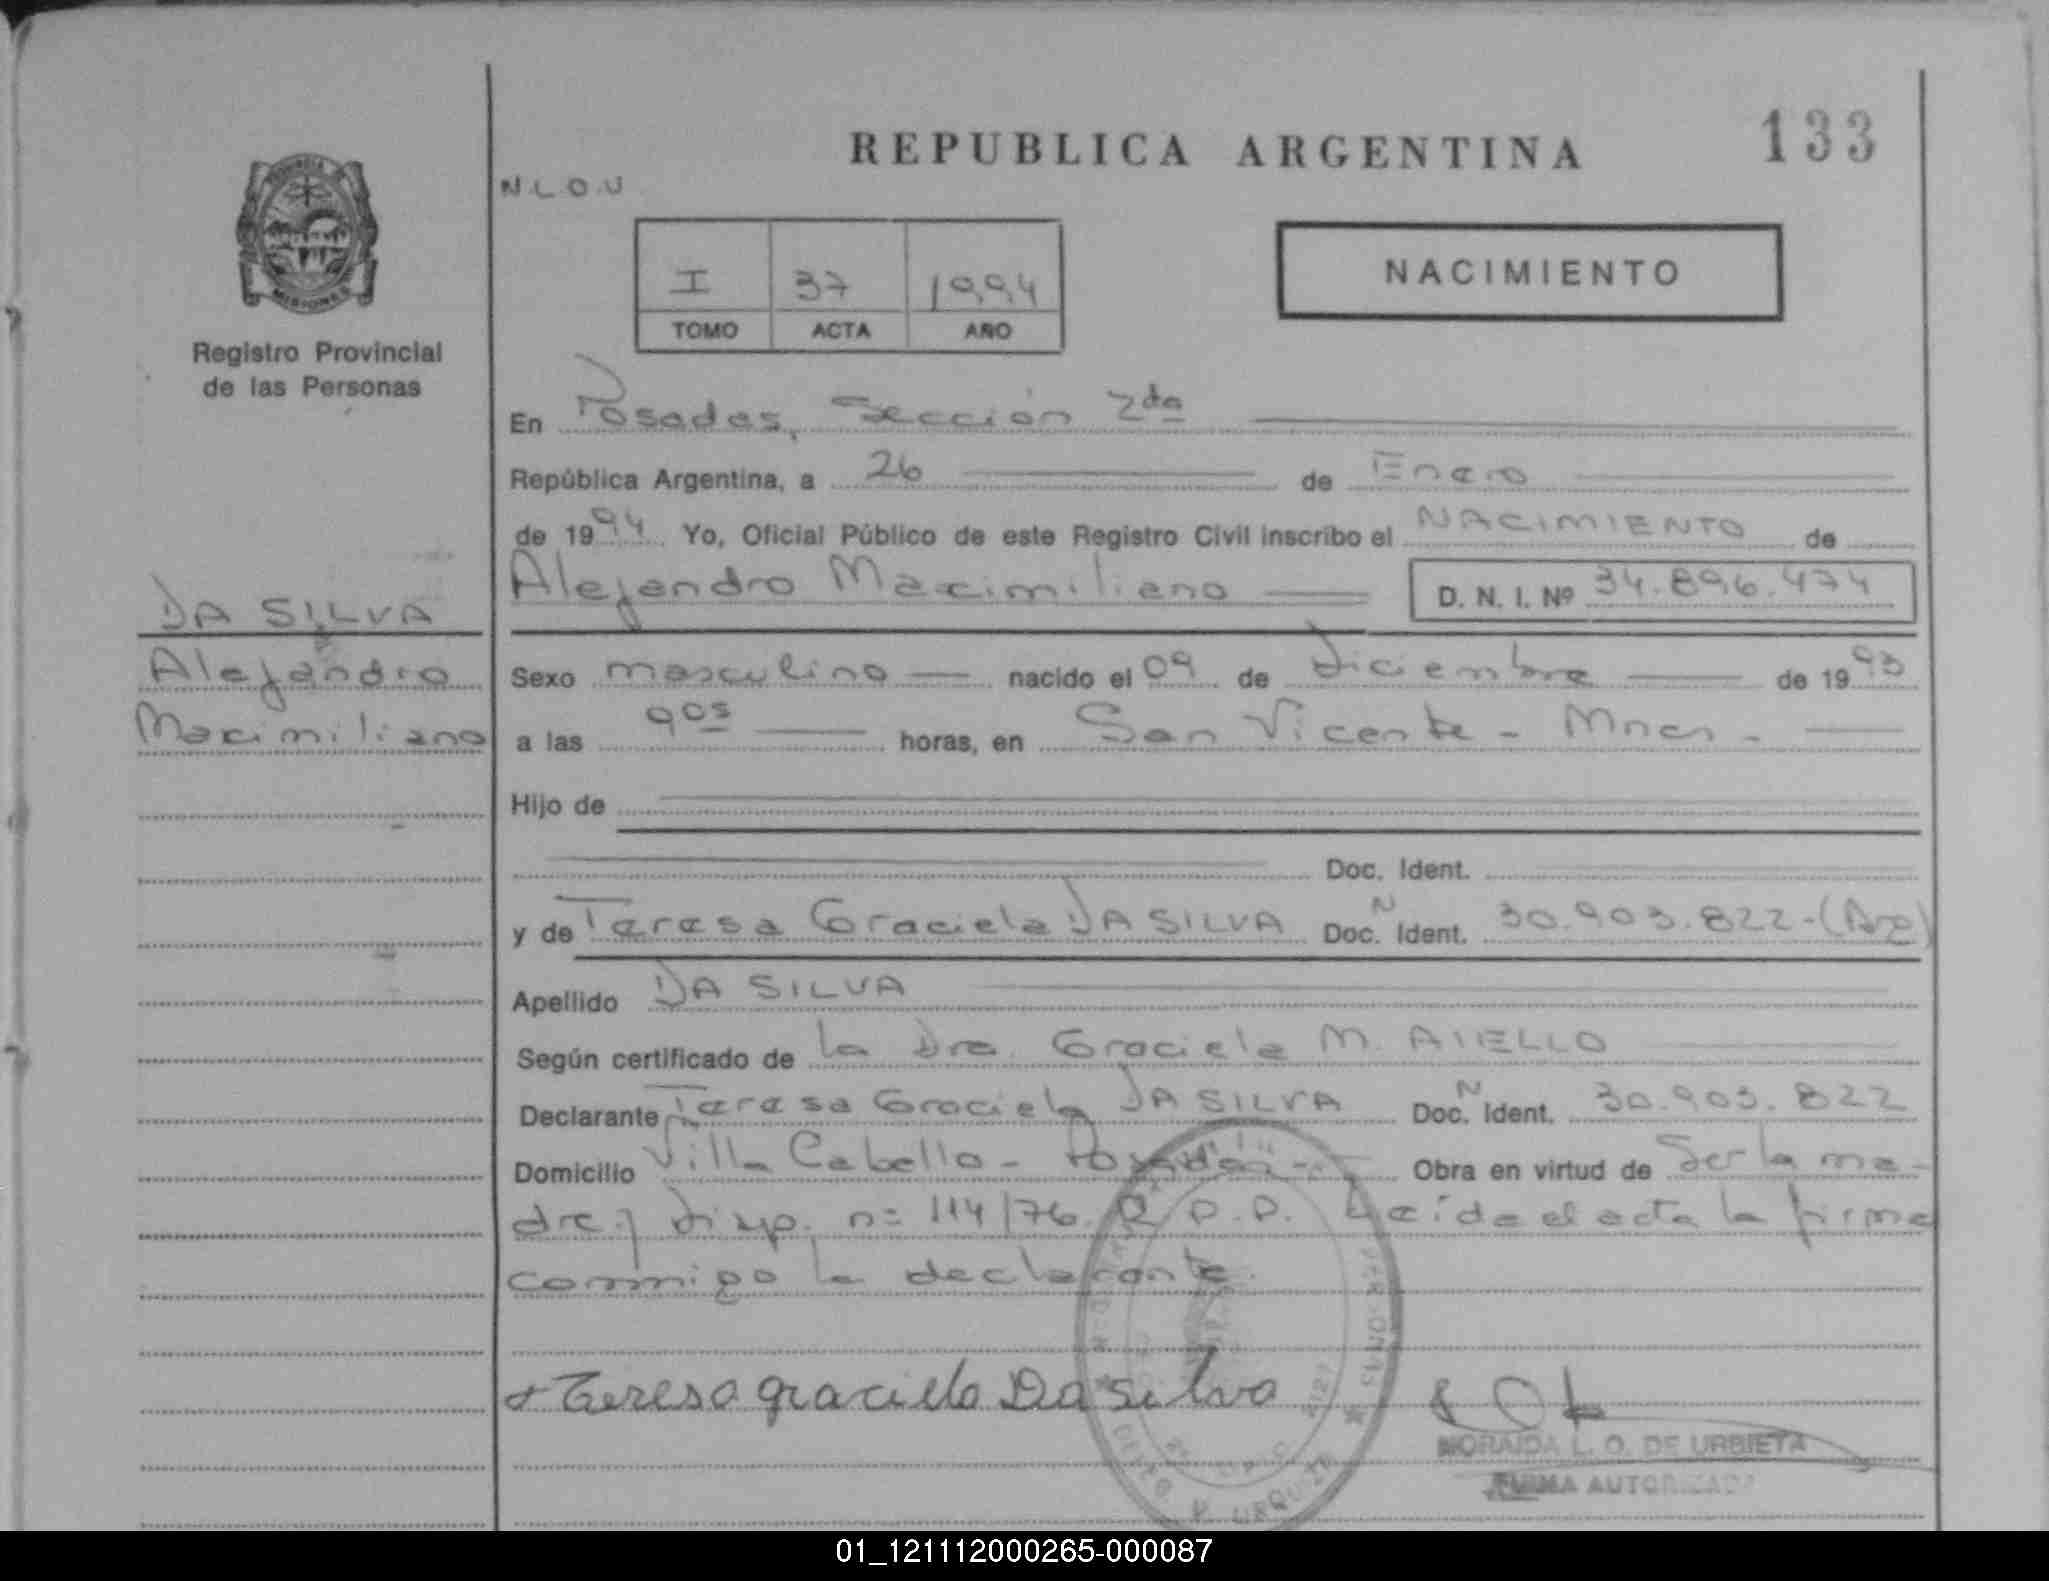 REPUBLICA ARGENTINA
133
N.L.O.U
I 37 1994
TOMO ACTA AÑO
NACIMIENTO
PROVINCIA
MISIONES
Registro Provincial
de las Personas
DA SILVA
Alejandro
Maximiliano
En Posadas, Sección 2da
República Argentina, a 26 de Enero
de 1994 Yo, Oficial Público de este Registro Civil inscribo el NACIMIENTO de
Alejandro Maximiliano D. N. I. Nº 34.896.474
Sexo masculino nacido el 09 de diciembre de 1993
a las 9 05 horas, en San Vicente - Mnes -
Hijo de
Doc. Ident.
y de Teresa Graciela DA SILVA Doc. N Ident. 30.903.822-(Arg)
Apellido DA SILVA
Según certificado de la Dra. Graciela M. AIELLO
Declarante Teresa Graciela DA SILVA Doc. N Ident. 30.903.822
Domicilio Villa Cabello - Posadas - Obra en virtud de Ser la ma-
dre y disp. nº 114/76. R.P.P. Leída el acta la firma
conmigo la declarante.
Teresa graciela Da Silva
NORAIDA L. O. DE URBIETA
FIRMA AUTORIZADA
01_121112000265-000087